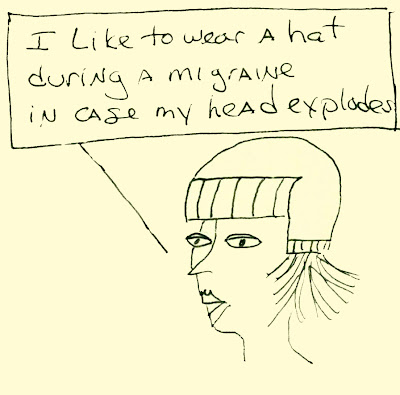 I Like to wear A hat
duriNg A migrAiNe
iN cAse my heAd explodes